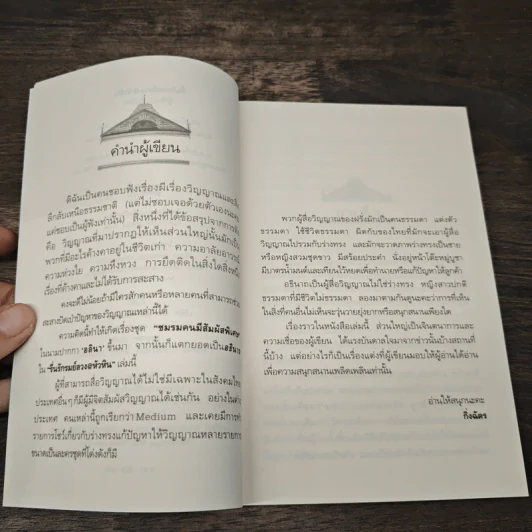 คำนำผู้เขียน
ดิฉันเป็นคนชอบฟังเรื่องมีเรื่องวิญญาณและสิ่ง
ลึกลับเหนือธรรมชาติ (แต่ไม่ชอบเจอด้วยตัวเองนะคะ
แต่ชอบเป็นผู้ฟังเท่านั้น) สิ่งหนึ่งที่ได้ข้อสรุปจากการฟัง
คือ วิญญาณที่มาปรากฏให้เห็นส่วนใหญ่นั้นมักเป็น
พวกที่มีอะไรค้างคาอยู่ในชีวิตเก่า ความอาลัยอาวรณ์
ความห่วงใย ความหึงหวง การยึดติดในสิ่งใดสิ่งหนึ่ง
เรื่องที่ค้างคาและไม่ได้รับการสะสาง
คงจะดีไม่น้อยถ้ามีใครสักคนหรือหลายคนที่สามารถช่วย
สะสางปัดเป่าปัญหาของวิญญาณเหล่านี้ได้
ความคิดนี้ทำให้เกิดเรื่องชุด "ชมรมคนมีสัมผัสพิเศษ"
ในนามปากกา 'อลินา' ขึ้นมา จากนั้นก็แตกยอดเป็น
ใน "รื่นรักรมย์ลวงอหัวหิน" เล่มนี้
ผู้ที่สามารถสื่อวิญญาณได้ไม่ใช่มีเฉพาะในสังคมไทย
ประเทศอื่นๆ ก็มีผู้มีจิตสัมผัสวิญญาณได้เช่นกัน อย่างใน
ประเทศ คนเหล่านี้ถูกเรียกว่า Medium และเคยมีการทำ
รายการโชว์เกี่ยวกับร่างทรงแก้ปัญหาให้วิญญาณหลายรายการ
ขนาดเป็นละครชุดที่โด่งดังก็มี
พวกผู้สื่อวิญญาณของฝรั่งมักเป็นคนธรรมดา แต่งตัว
ธรรมดา ใช้ชีวิตธรรมดา ผิดกับของไทยที่มักจะเอาผู้สื่อ
วิญญาณไปรวมกับร่างทรง และมักจะวาดภาพร่างทรงเป็นชาย
หรือหญิงสวมชุดขาว มีสร้อยประคำ นั่งอยู่หน้าโต๊ะหมู่บูชา
มีบาตรน้ำมนต์และเทียนไว้หยดเพื่อทำนายหรือแก้ปัญหาให้ลูกค้า
อธินาถเป็นผู้สื่อวิญญาณไม่ใช่ร่างทรง หญิงสาวปกติ
ธรรมดาที่มีชีวิตไม่ธรรมดา ลองมาตามกันดูนะคะว่าการที่เห็น
ในสิ่งที่คนอื่นไม่เห็นจะวุ่นวายยุ่งยากหรือสนุกสนานเพียงใด
เรื่องราวในหนังสือเล่มนี้ ส่วนใหญ่เป็นจินตนาการและ
ความเชื่อของผู้เขียน ได้แรงบันดาลใจมาจากข่าวนั้นบ้างสถานที่
นี้บ้าง แต่อย่างไรก็เป็นเรื่องแต่งที่ผู้เขียนมอบให้ผู้อ่านได้อ่าน
เพื่อความสนุกสนานเพลิดเพลินเท่านั้น
อ่านให้สนุกนะคะ
กิ่งฉัตร